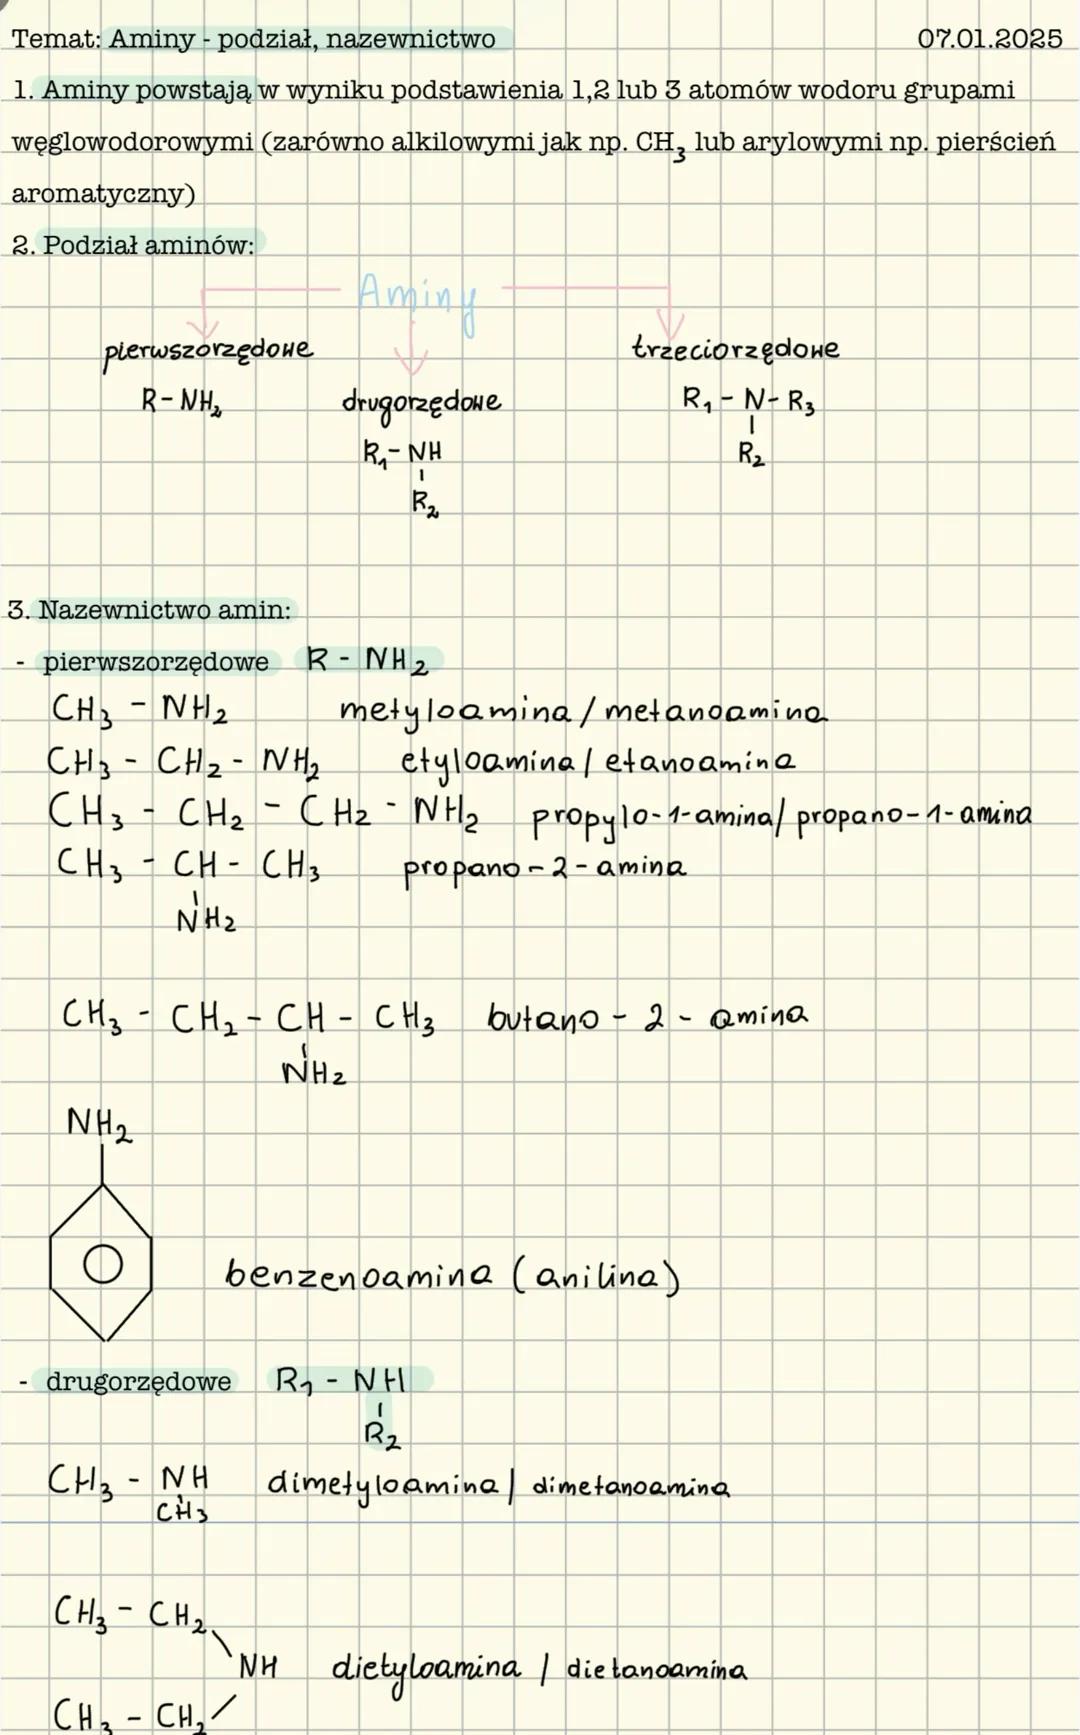 Temat: Aminy - podział, nazewnictwo 07.01.2025
1. Aminy powstają w wyniku podstawienia 1,2 lub 3 atomów wodoru grupami
węglowodorowymi (zarówno alkilowymi jak np. CH₃ lub arylowymi np. pierścień
aromatyczny)
2. Podział aminów:
Aminy
pierwszorzędowe
R - NH₂
drugorzędowe
R₁ - NH
R₂
trzeciorzędowe
R₁ - N - R₃
R₂
3. Nazewnictwo amin:
- pierwszorzędowe R - NH₂
CH₃ - NH₂ metyloamina / metanoamina
CH₃ - CH₂ - NH₂ etyloamina / etanoamina
CH₃ - CH₂ - CH₂ - NH₂ propylo-1-amina / propano-1-amina
CH₃ - CH - CH₃ propano-2-amina
NH₂
CH₃ - CH₂ - CH - CH₃ butano - 2 - amina
NH₂
NH₂
benzenoamina (anilina)
- drugorzędowe R₁ - NH
R₂
CH₃ - NH dimetyloamina / dimetanoamina
CH₃
CH₃ - CH₂
NH dietyloamina / dietanoamina
CH₃ - CH₂